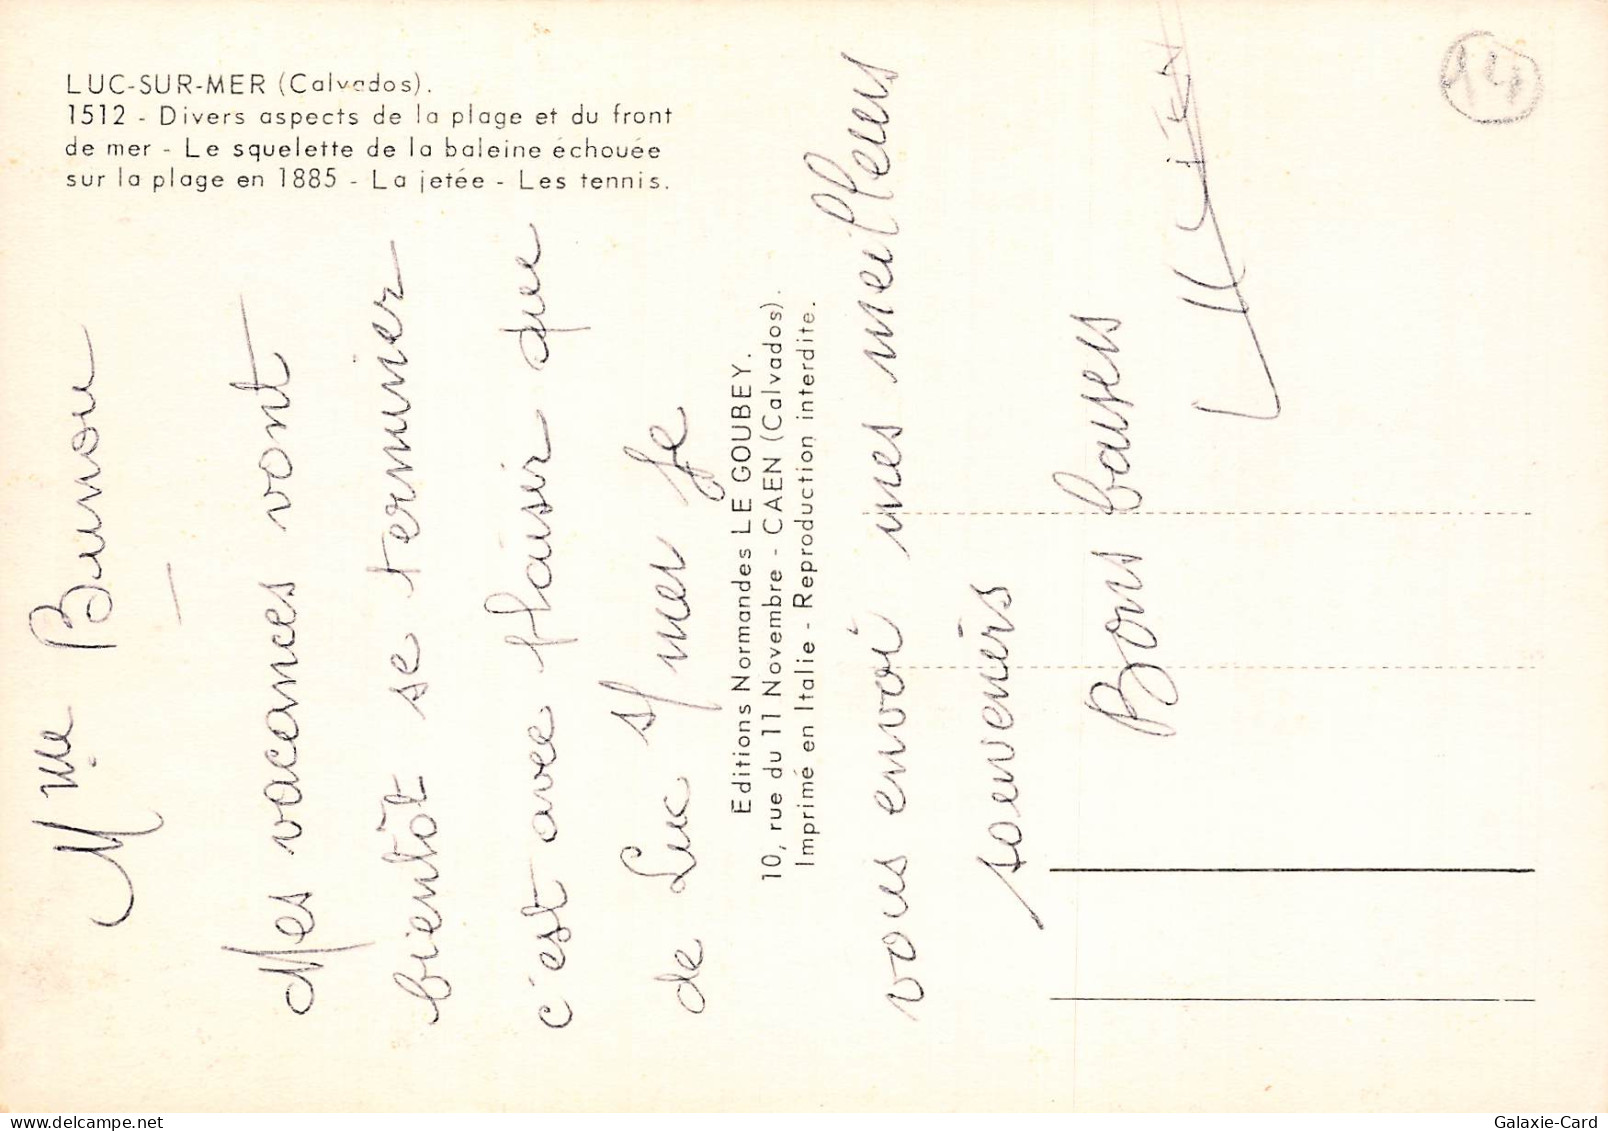 LUC-SUR-MER (Calvados).
1512 - Divers aspects de la plage et du front
de mer - Le squelette de la baleine échouée
sur la plage en 1885 - La jetée - Les tennis.
14
Mlle
Mes vacances vont
bientôt se terminer
c'est avec plaisir que
de Luc s/mer je
vous envoi mes meilleurs
souvenirs
Bons baisers
Editions Normandes LE GOUBEY.
10, rue du 11 Novembre - CAEN (Calvados).
Imprimé en Italie - Reproduction interdite.
Galaxie-Card